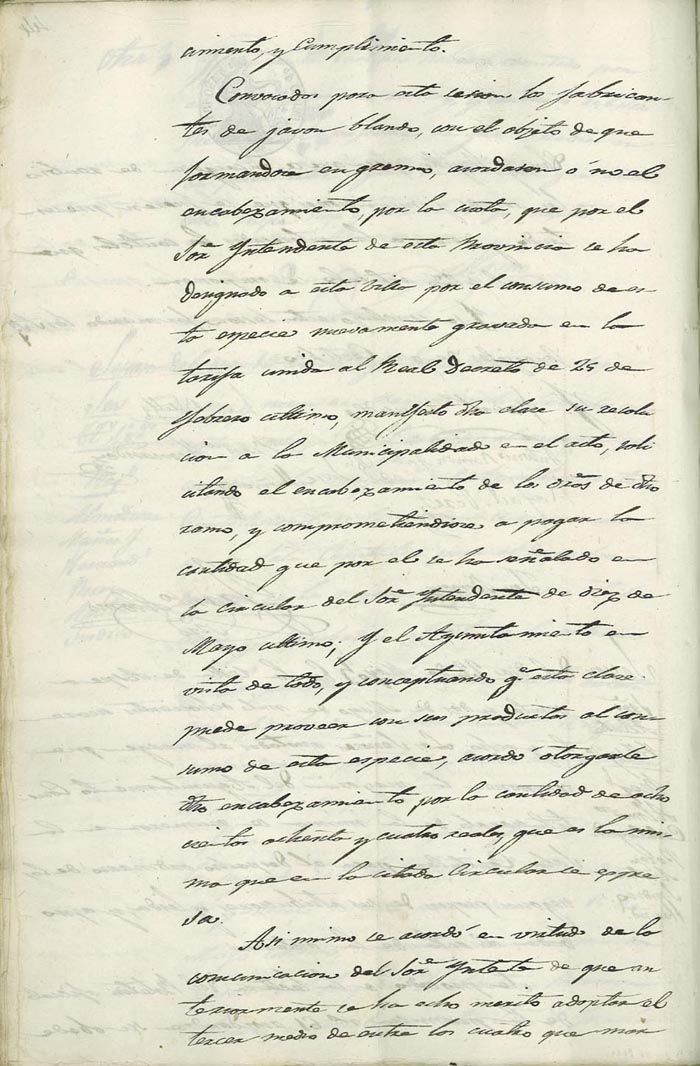 cimiento, y Cumplimiento.
Convocados para esta sesion los fabrican-
tes de javon blando, con el objeto de que
formandose en gremio, acordasen ó no el
encabezamiento, por la cuota, que por el
Sor. Yntendente de esta Provincia se ha
designado a esta Villa por el consumo de es-
ta especie nuevamente gravada en la
tarifa unida al Real Decreto de 25 de
Febrero ultimo, manifesto dha clase su resolu
cion a la Municipalidad en el acto, soli
citando el encabezamiento de los dros de dho
ramo, y comprometiendose a pagar la
cantidad que por el se ha señalado en
la circular del Sor. Yntendente de diez de
Mayo ultimo; Y el Ayuntamiento en
vista de todo, y conceptuando q.e esta clase
puede proveer con sus productos al con-
sumo de esta especie, acordó otorgarle
dho encabezamiento por la cantidad de ocho
cientos ochenta y cuatro reales, que es la mis-
ma que en la citada Circular se espre
sa.
Asi mismo se acordó en virtud de la
comunicacion del Sor. Yntete de que an
teriormente se ha echo merito adoptar el
tercer medio de entre los cuatro que mar